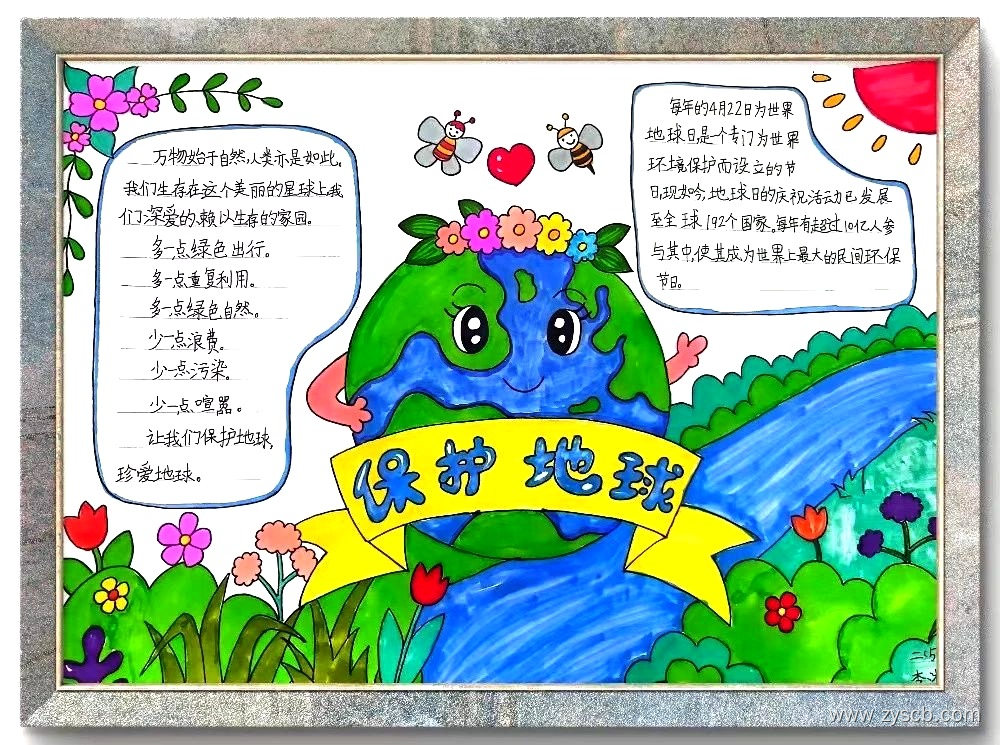 万物始于自然,人类亦是如此。
我们生存在这个美丽的星球上,我
们深爱的、赖以生存的家园。
多一点绿色出行。
多一点重复利用。
多一点绿色自然。
少一点浪费。
少一点污染。
少一点喧嚣。
让我们保护地球,
珍爱地球。
每年的4月22日为世界
地球日,是一个专门为世界
环境保护而设立的节
日,现如今,地球日的庆祝活动已发展
至全球192个国家。每年有超过10亿人参
与其中,使其成为世界上最大的民间环保
节日。
保护地球
www.zyscb.com